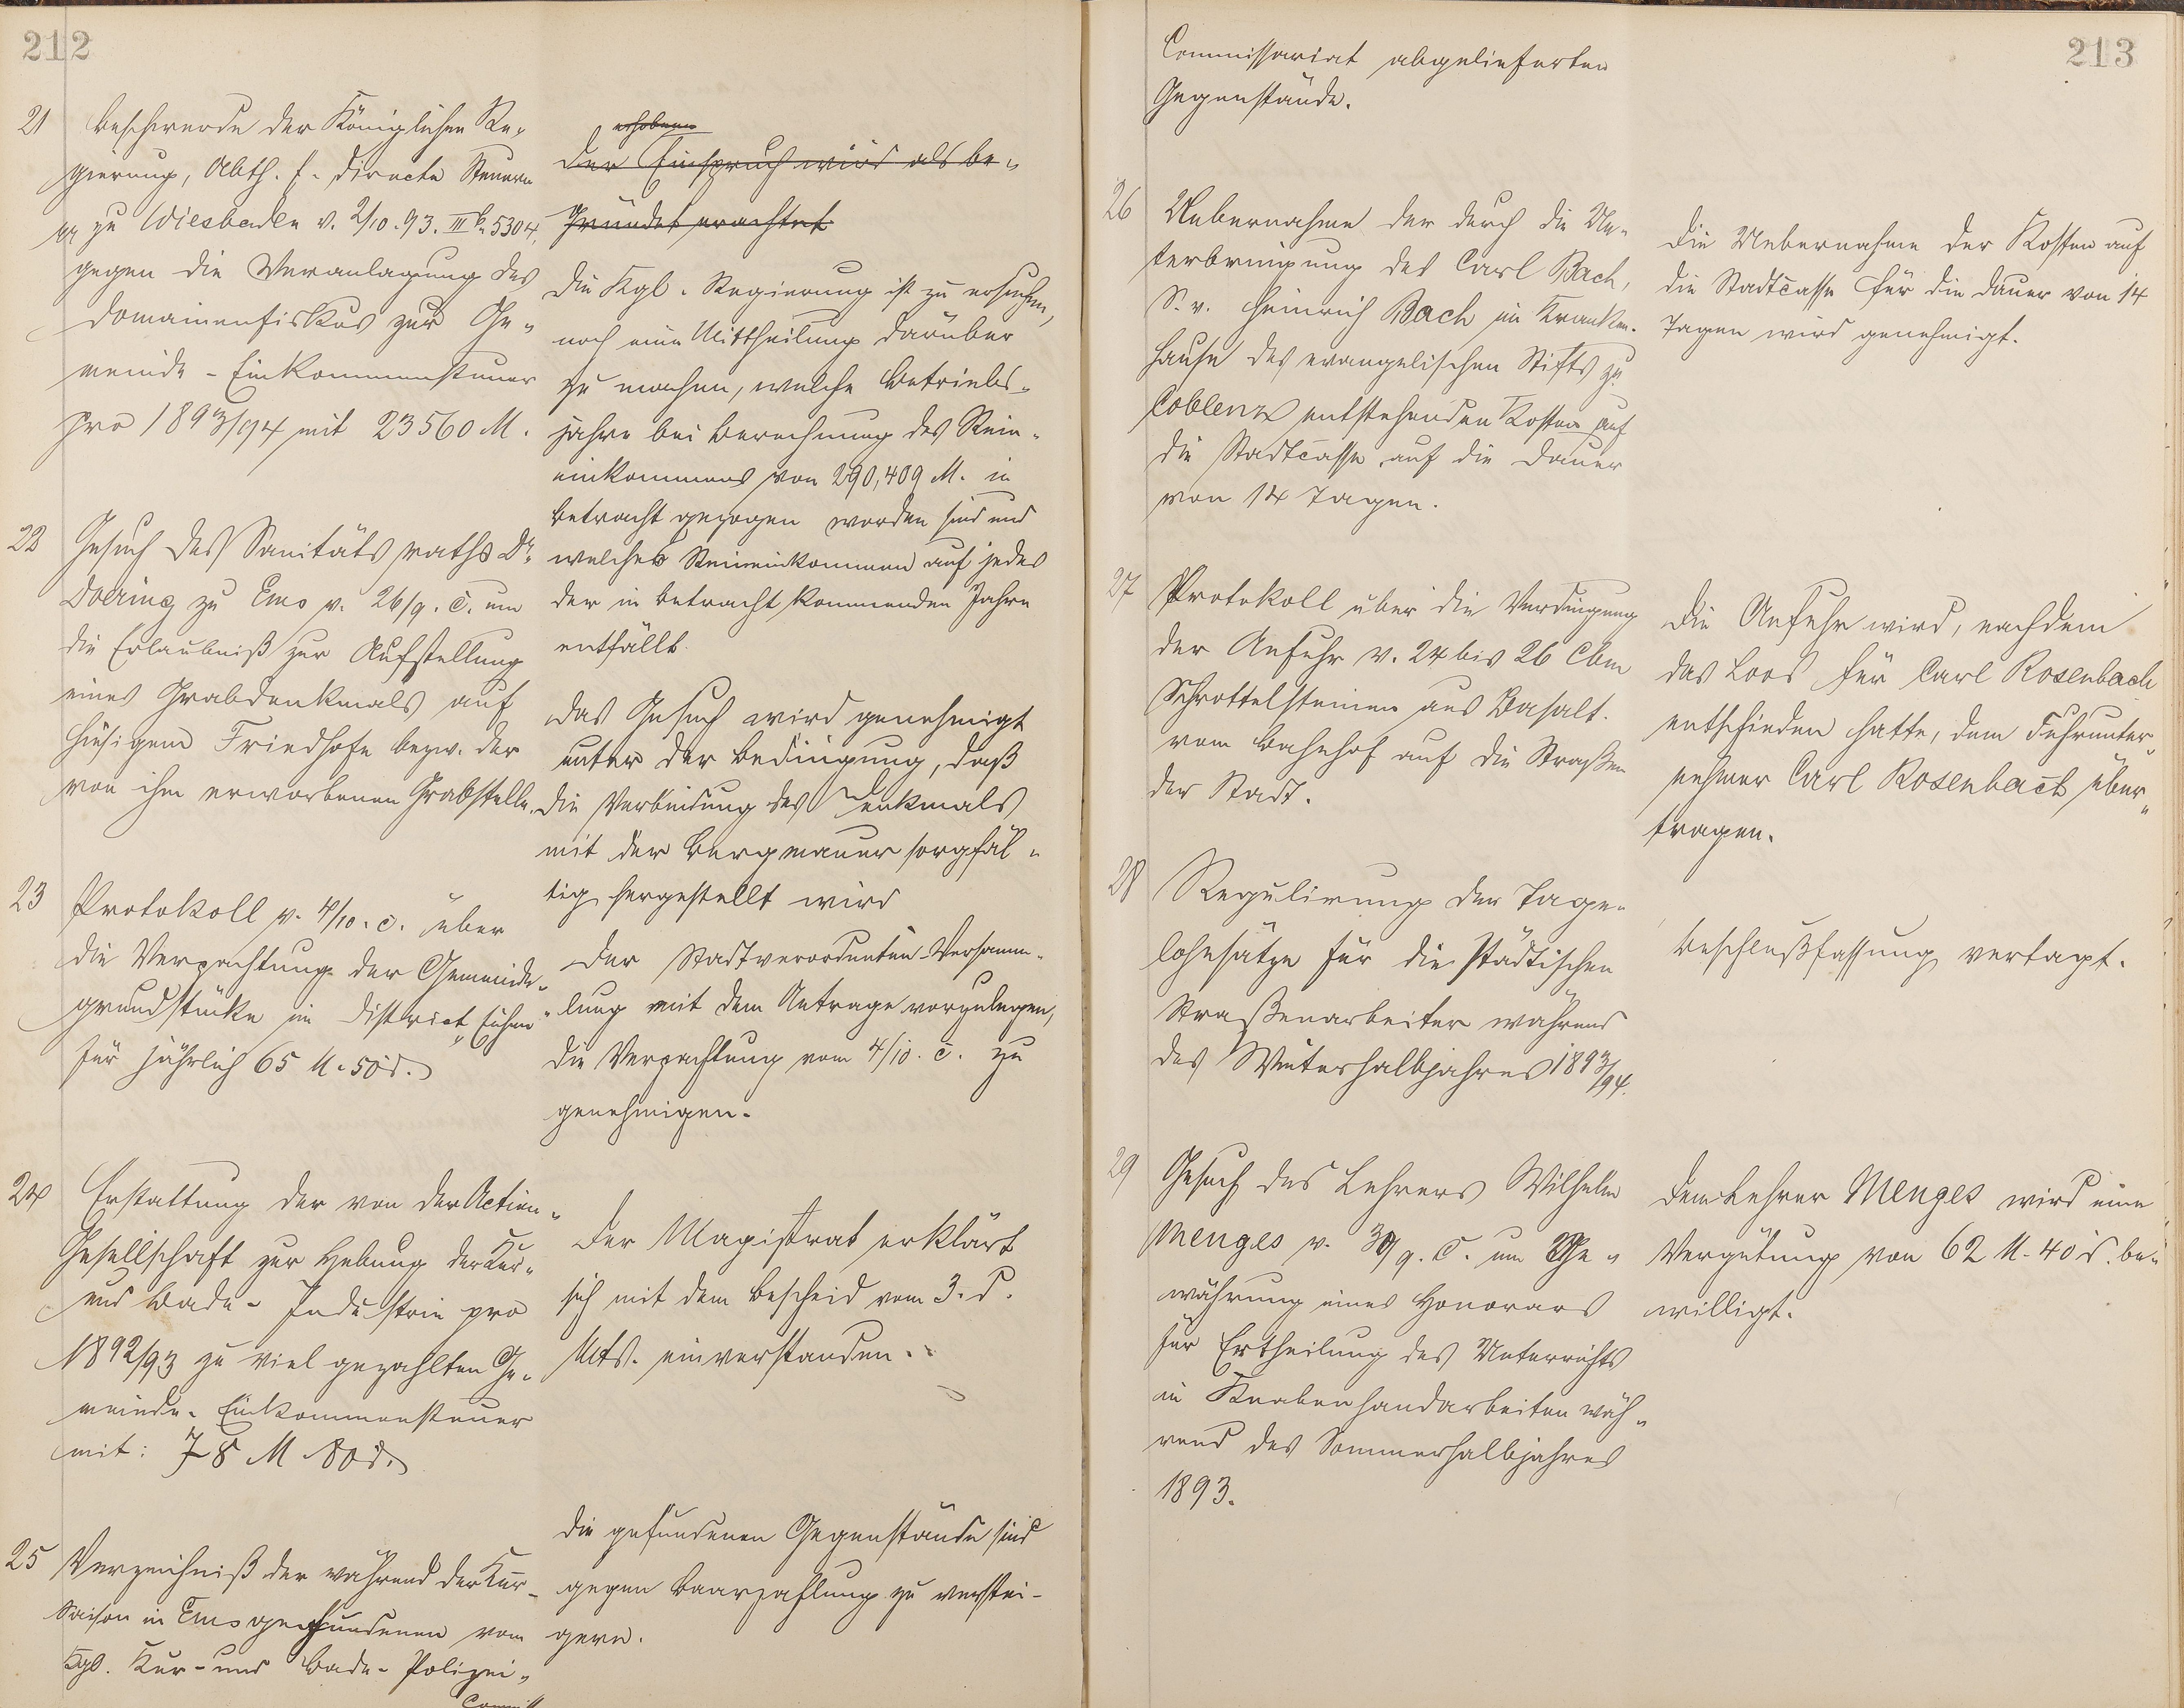 212
21 Beschwerde der Königlichen Re-
gierung, Abth. f. directe Steuern
pp zu Wiesbaden v. 2/10. 93. III b. 5304,
gegen die Veranlagung des
Domainenfiskus zur Ge-
meinde-Einkommensteuer
pro 1893/94 mit 23560 M.
erhobene
Der Einspruch wird als be-
gründet erachtet
Die Kgl. Regierung ist zu ersuchen,
noch eine Mittheilung darüber
zu machen, welche Betriebs-
jahre bei Berechnung des Rein-
einkommens von 290,409 M. in
Betracht gezogen worden sind und
welches Reineinkommen auf jedes
der in Betracht kommenden Jahre
entfällt.
22 Gesuch des Sanitätsraths Dr.
Doering zu Ems v. 26/9. c. um
die Erlaubniß zur Aufstellung
eines Grabdenkmals auf
hiesigem Friedhofe bezw. der
von ihm erworbenen Grabstelle.
Das Gesuch wird genehmigt
unter der Bedingung, daß
die Verbindung des Denkmals
mit der Bergmauer sorgfäl-
tig hergestellt wird
23 Protokoll v. 4/10. c. über
die Verpachtung der Gemeinde-
grundstücke im District "
für jährlich 65 M. 50 d.
Der Stadtverordneten-Versamm-
lung mit dem Antrage vorzulegen,
die Verpachtung vom 4/10. c. zu
genehmigen.
24 Erstattung der von der Actien-
Gesellschaft zur Hebung der Kur-
und Bade-Industrie pro
1892/93 zu viel gezahlten Ge-
meinde-Einkommensteuer
mit: 78 M 80 d.
Der Magistrat erklärt
sich mit dem Bescheid vom 3. d.
Mts. einverstanden.
25 Verzeichniß der während der Kur-
Saison in Ems gefundenen vom
Kgl. Kur- und Bade-Polizei-
Die gefundenen Gegenstände sind
gegen Baarzahlung zu verstei-
gern.
213
Commissariat abgelieferten
Gegenstände.
26 Uebernahme der durch die Un-
terbringung des Carl Bach,
S. v. Heinrich Bach im Kranken-
hause des evangelischen Stifts zu
Coblenz entstehenden Kosten auf
die Stadtcasse auf die Dauer
von 14 Tagen.
Die Uebernahme der Kosten auf
die Stadtcasse für die Dauer von 14
Tagen wird genehmigt.
27 Protokoll über die Verdingung
der Anfuhr v. 24 bis 26 Cbm
Schrottelsteinen aus Basalt.
vom Bahnhof auf die Straßen
der Stadt.
Die Anfuhr wird, nachdem
das Loos für Carl Rosenbach
entschieden hatte, dem Fuhrunter-
nehmer Carl Rosenbach über-
tragen.
28 Regulirung der Tage-
lohnsätze für die städtischen
Straßenarbeiter während
des Winterhalbjahres 1893/94.
Beschlußfassung vertagt.
29 Gesuch des Lehrers Wilhelm
Menges v. 30/9. c. um Ge-
währung eines Honorars
für Ertheilung des Unterrichts
in Knabenhandarbeiten wäh-
rend des Sommerhalbjahres
1893.
Dem Lehrer Menges wird eine
Vergütung von 62 M. 40 d. be-
willigt.